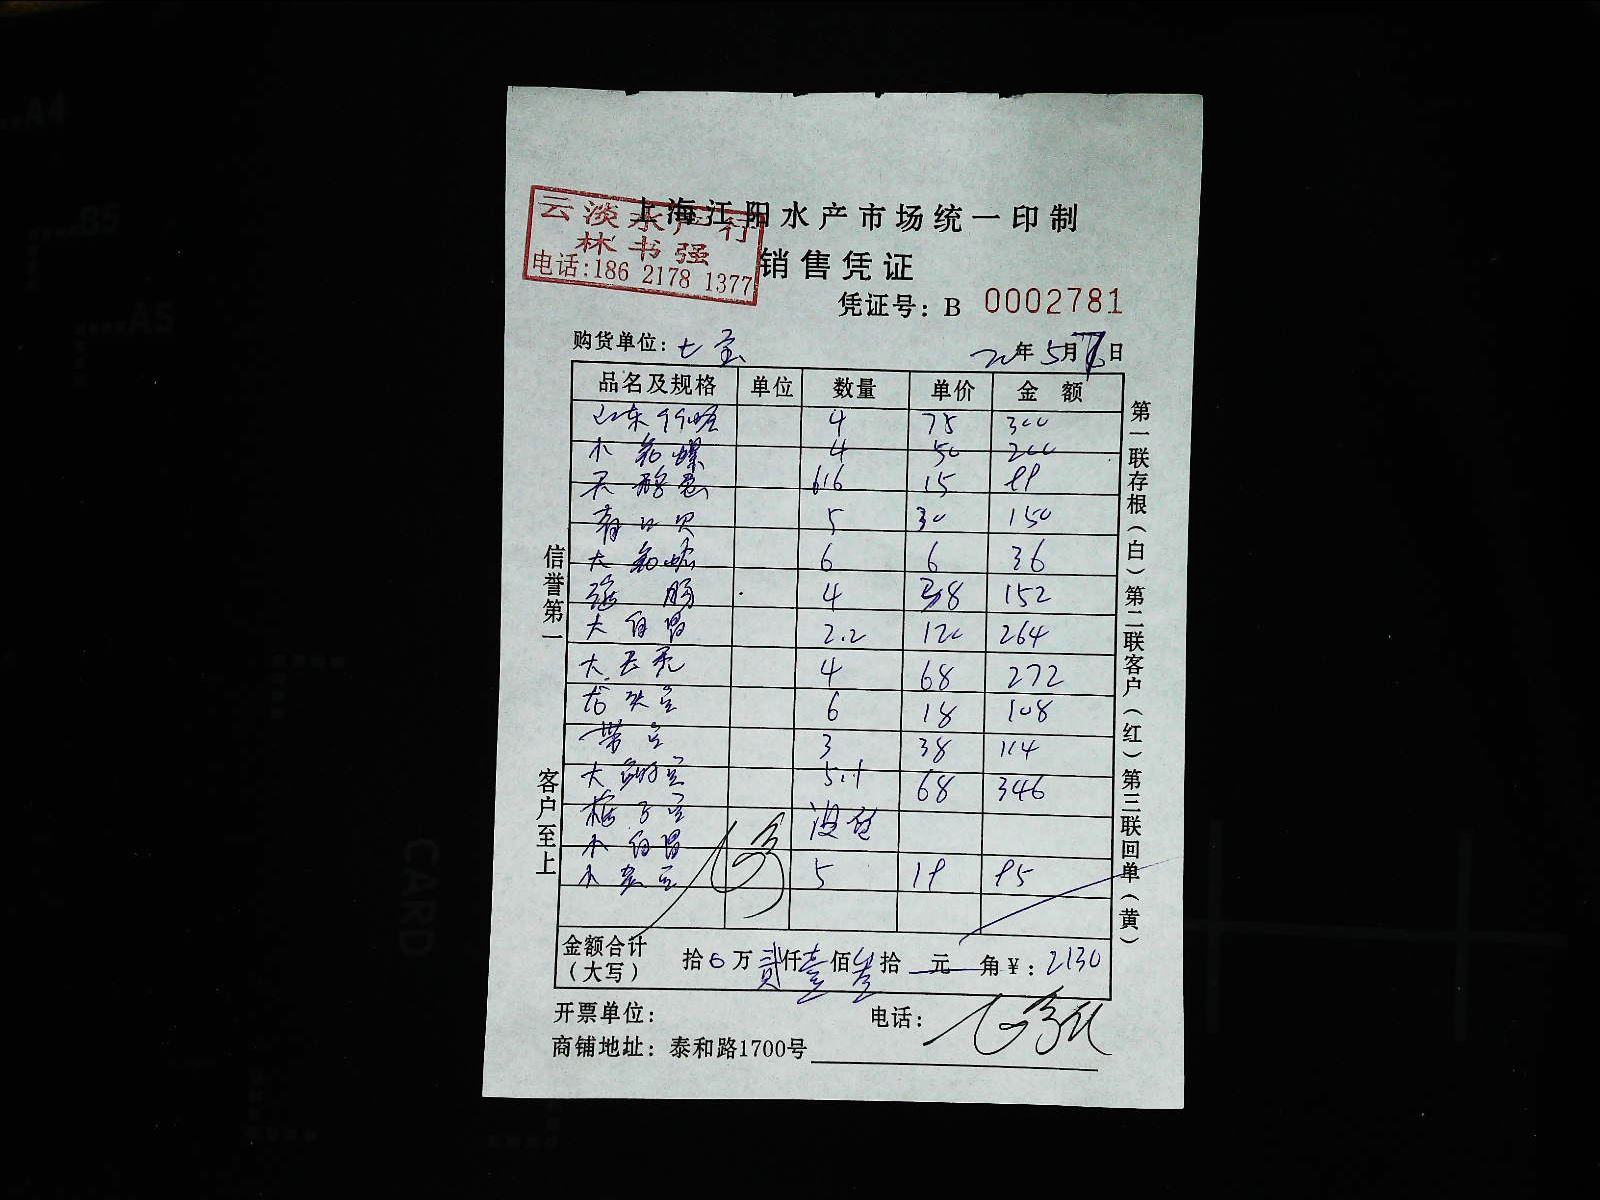 上海江阳水产市场统一印制
云淡水产行
林书强
电话:186 2178 1377
销售凭证
凭证号: B 0002781
购货单位: 七宝 20年5月日
品名及规格 单位 数量 单价 金额
山东 4 75 300
小 螺 4 50 200
15 99
贝 5 30 150
大 6 6 36
肠 4 38 152
大 2.2 120 264
大 4 68 272
龙头 6 18 108
带 3 38 114
大 5.1 68 346
梅子 没货
小
小黄 5 19 95
金额合计(大写) 拾0万贰仟壹佰叁拾元角¥: 2130
开票单位: 电话:
商铺地址: 泰和路1700号
信誉第一 客户至上
第一联存根(白)第二联客户(红)第三联回单(黄)